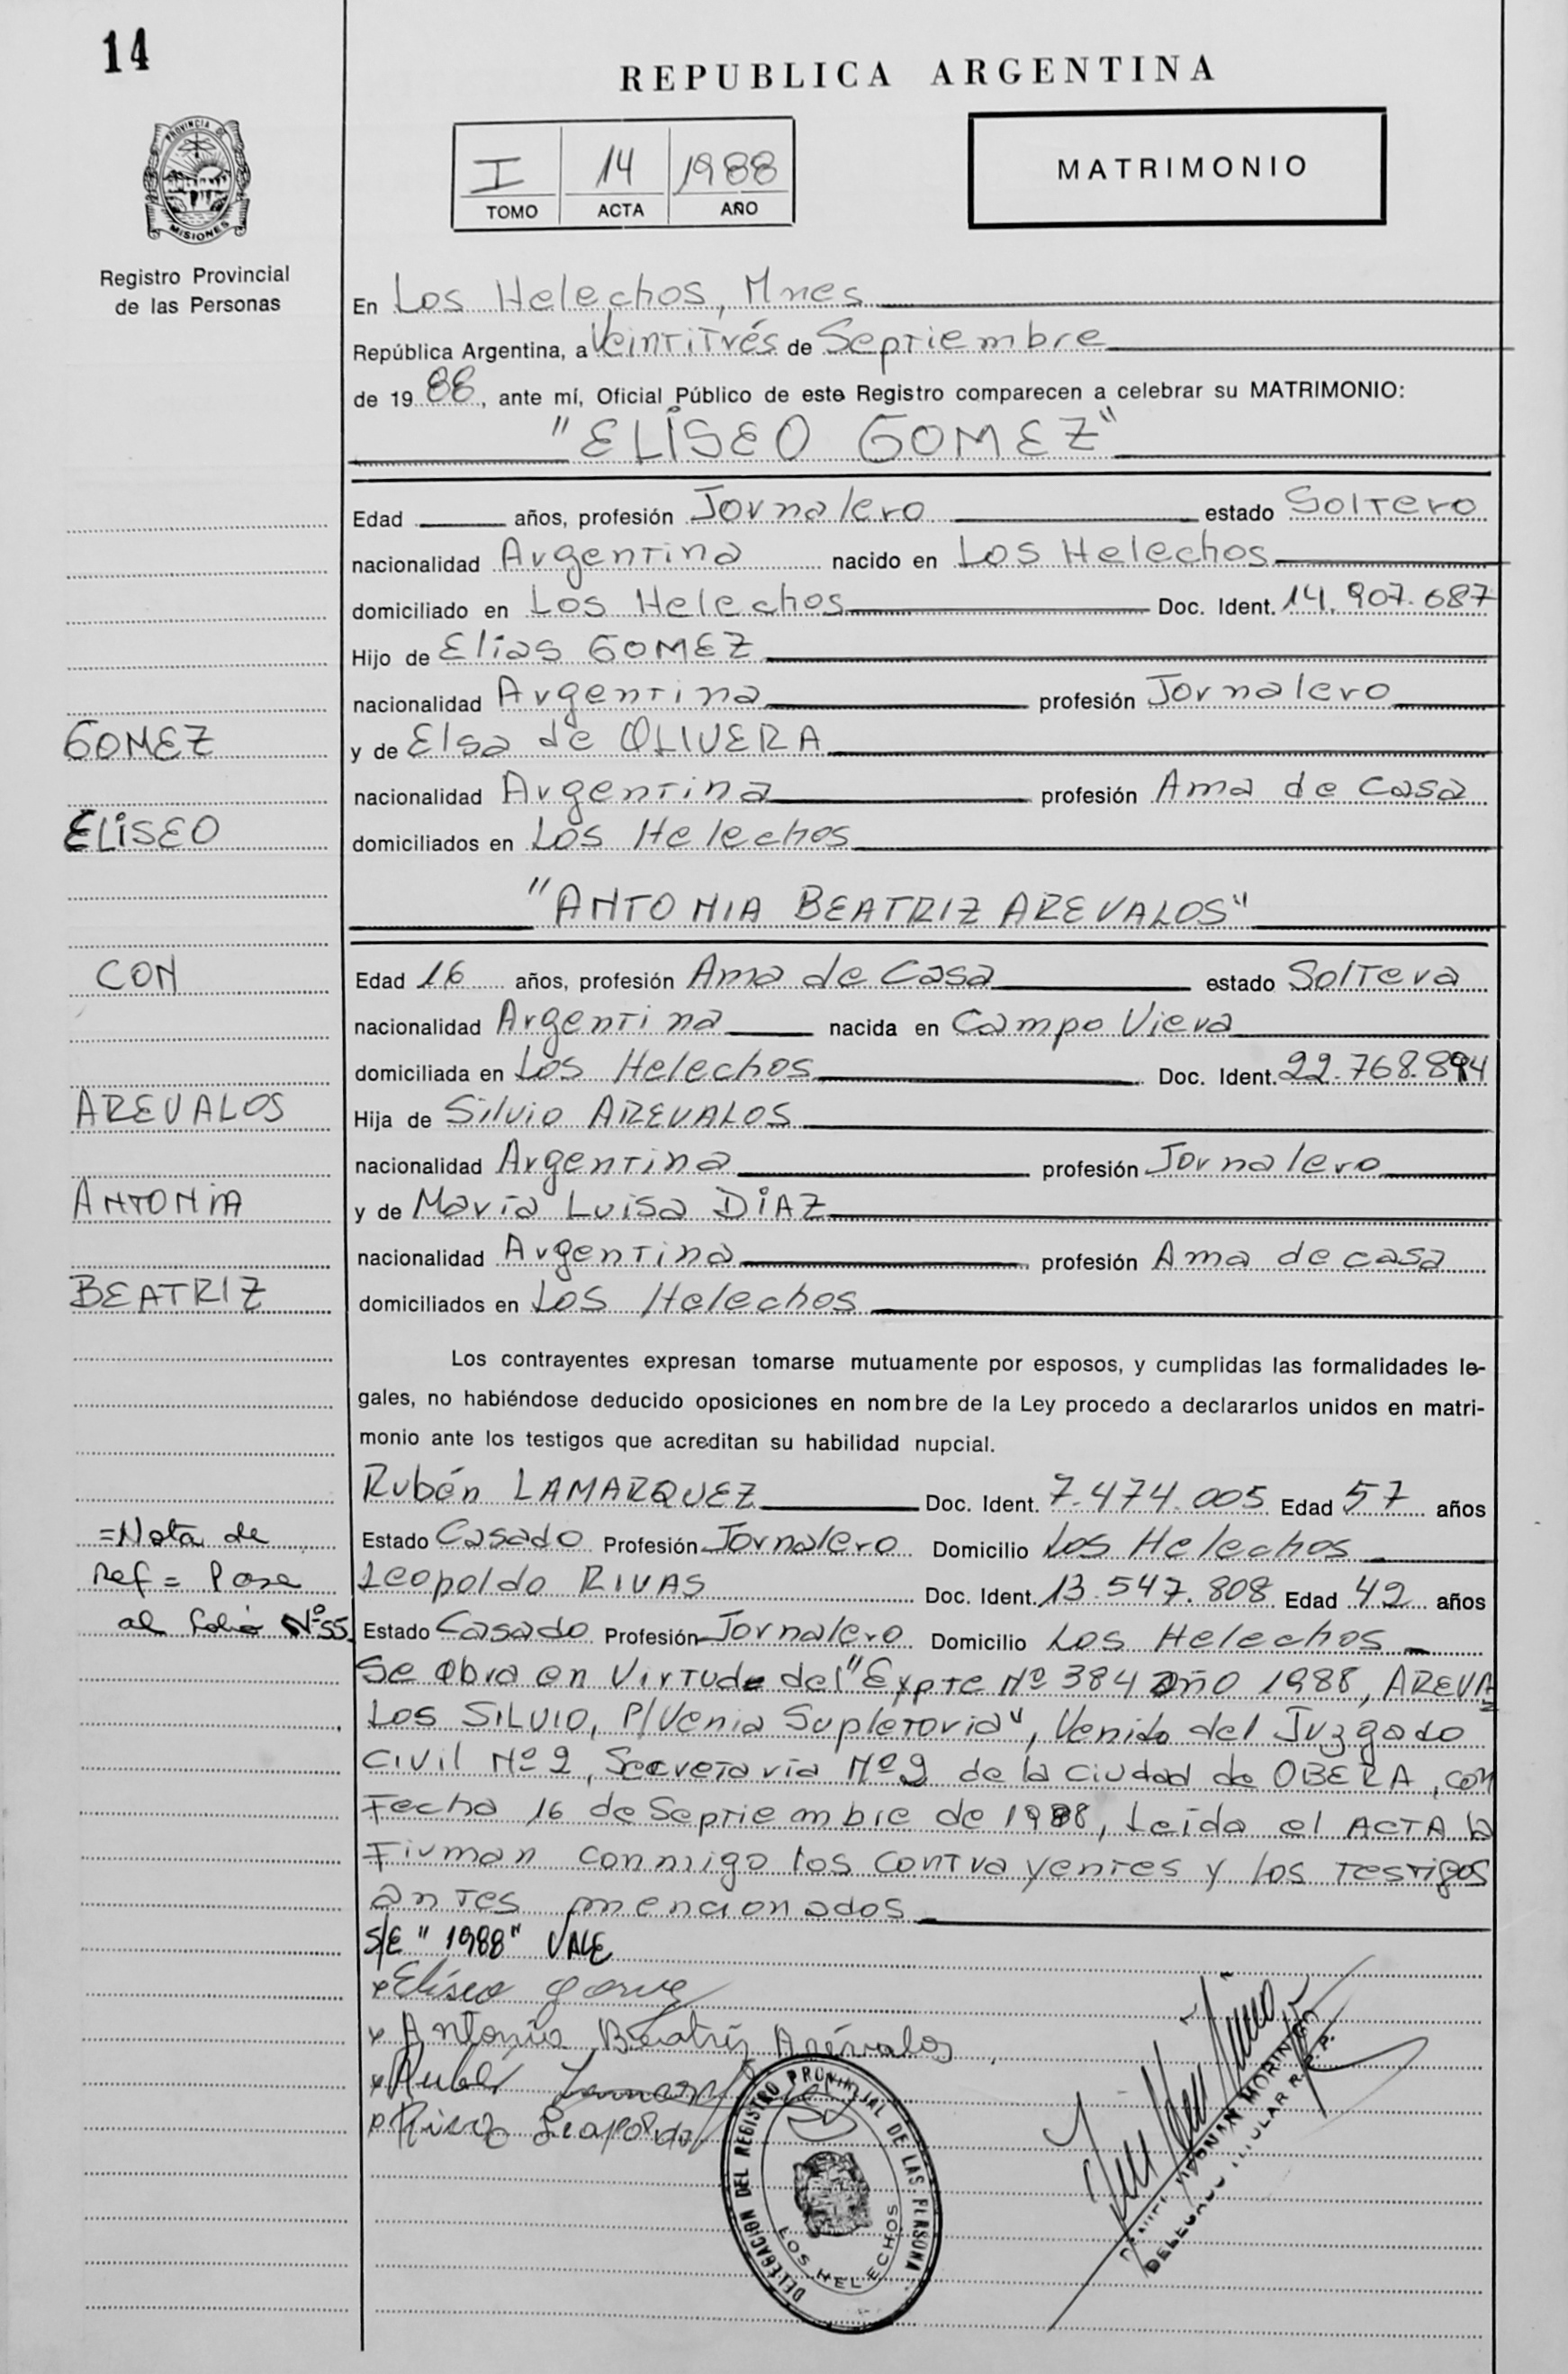 14
REPUBLICA ARGENTINA
I 14 1988
TOMO ACTA AÑO
MATRIMONIO
PROVINCIA DE
MISIONES
Registro Provincial
de las Personas
En Los Helechos, Mnes
República Argentina, a Veintitrés de Septiembre
de 19 88, ante mí, Oficial Público de este Registro comparecen a celebrar su MATRIMONIO:
"ELISEO GOMEZ"
Edad años, profesión Jornalero estado Soltero
nacionalidad Argentina nacido en Los Helechos
domiciliado en Los Helechos Doc. Ident. 14.907.687
Hijo de Elias GOMEZ
nacionalidad Argentina profesión Jornalero
GOMEZ
y de Elsa de OLIVERA
nacionalidad Argentina profesión Ama de Casa
ELISEO
domiciliados en Los Helechos
"ANTONIA BEATRIZ AREVALOS"
CON
Edad 16 años, profesión Ama de Casa estado Soltera
nacionalidad Argentina nacida en Campo Viera
domiciliada en Los Helechos Doc. Ident. 22.768.894
AREVALOS
Hija de Silvio AREVALOS
nacionalidad Argentina profesión Jornalero
ANTONIA
y de María Luisa DIAZ
nacionalidad Argentina profesión Ama de casa
BEATRIZ
domiciliados en Los Helechos
Los contrayentes expresan tomarse mutuamente por esposos, y cumplidas las formalidades le-
gales, no habiéndose deducido oposiciones en nombre de la Ley procedo a declararlos unidos en matri-
monio ante los testigos que acreditan su habilidad nupcial.
Rubén LAMARQUEZ Doc. Ident. 7.474.005 Edad 57 años
=Nota de
Estado Casado Profesión Jornalero Domicilio Los Helechos
Ref= Pase
Leopoldo RIVAS Doc. Ident. 13.547.808 Edad 42 años
al folio Nº 55
Estado Casado Profesión Jornalero Domicilio Los Helechos
Se Obra en Virtud del "Expte Nº 384 año 1988, AREVA
LOS SILVIO, P/Venia Supletoria", Venido del Juzgado
Civil Nº 2, Secretaria Nº 2 de la Ciudad de OBERA, con
Fecha 16 de Septiembre de 1988, Leida el ACTA la
Firman conmigo los Contrayentes y los testigos
antes mencionados
S/E "1988" VALE
x Eliseo gomez
x Antonia Beatriz Arévalos
x Rubén
x Rivas Leopoldo
DELEGACION DEL REGISTRO PROVINCIAL DE LAS PERSONA
LOS HELECHOS
MORINGO
DELEGADO TITULAR R.P.P.